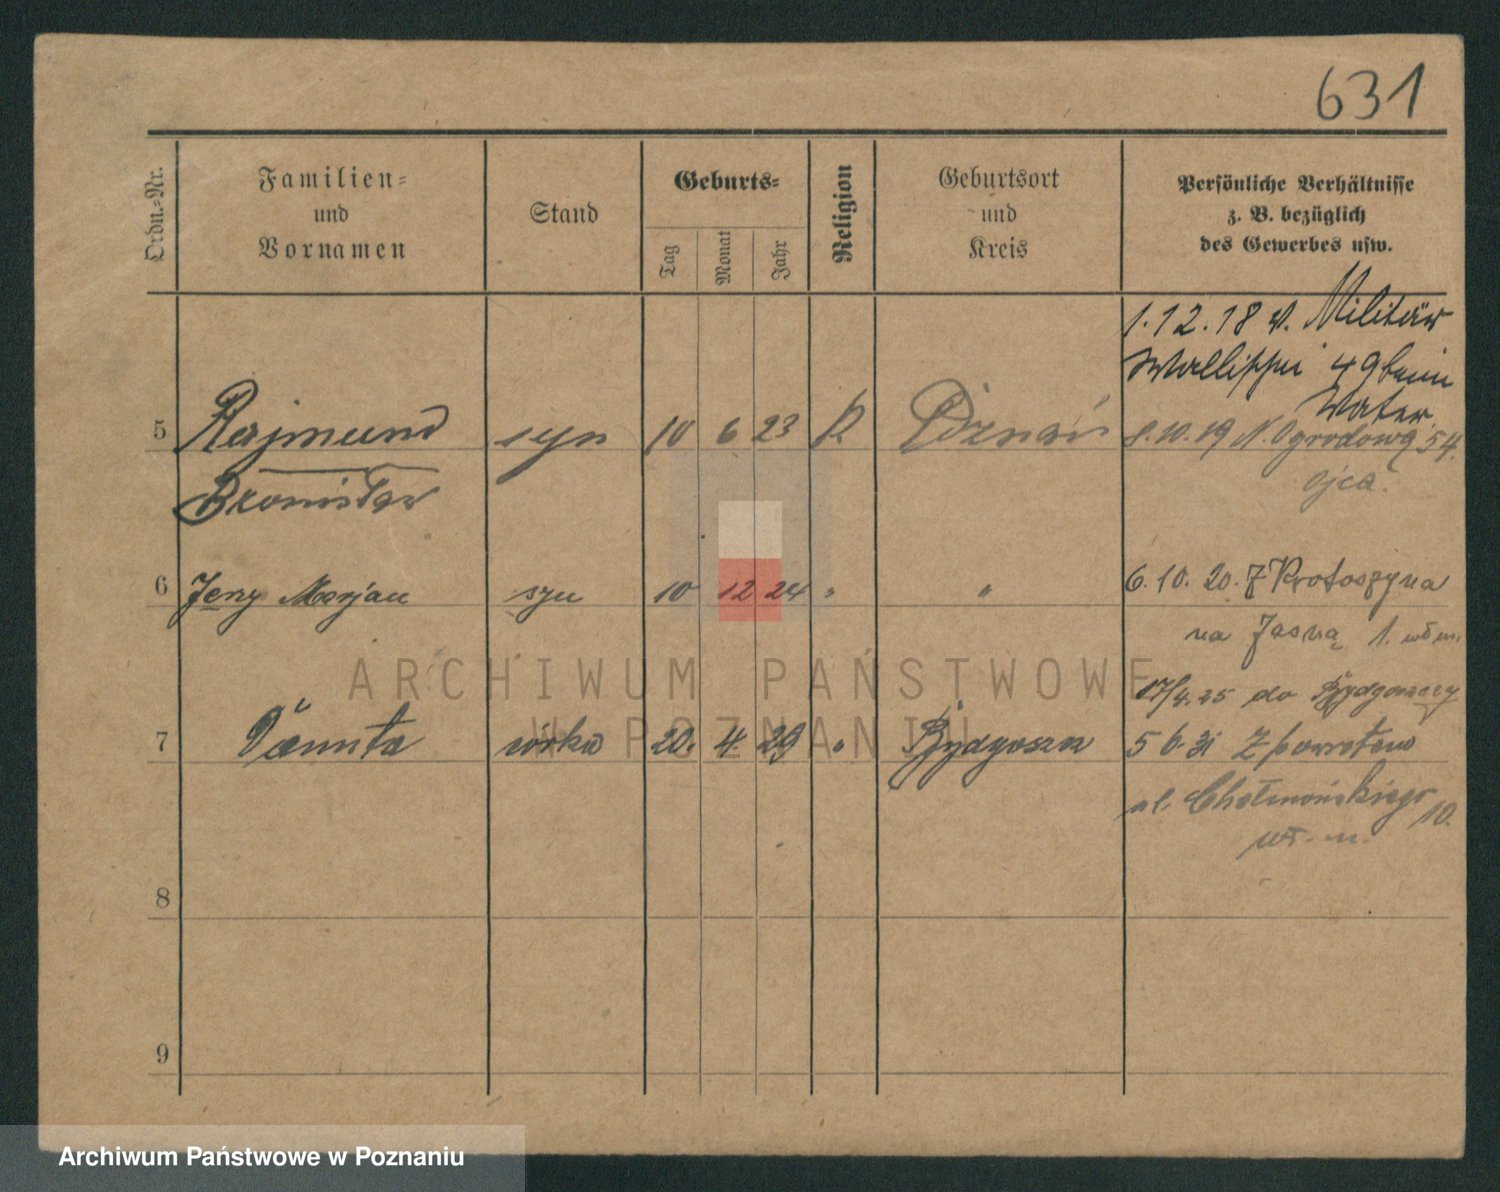 631
Ordn.-Nr.
Familien-
und
Vornamen
Stand
Geburts-
Tag
Monat
Jahr
Religion
Geburtsort
und
Kreis
Persönliche Verhältnisse
z. B. bezüglich
des Gewerbes usw.
1.12.18 v. Militär
Wallischei 49 beim
Vater
5 Rajmund syn 10 6 23 Poznań 8.10.19 N. Ogrodowa 54.
ojca.
Bronisław
6 Jerzy Marjan syn 10 12 24 " " 6.10.20. Z Krotoszyna
na Jasną 1. wł m.
17/4.25 do Bydgoszczy
7 Danuta córka 20. 4. 29 " Bydgoszcz 5 6. 31 Z powrotem
ul. Chełmońskiego 10.
wł. m.
8
9
ARCHIWUM PAŃSTWOWE
W POZNANIU
Archiwum Państwowe w Poznaniu